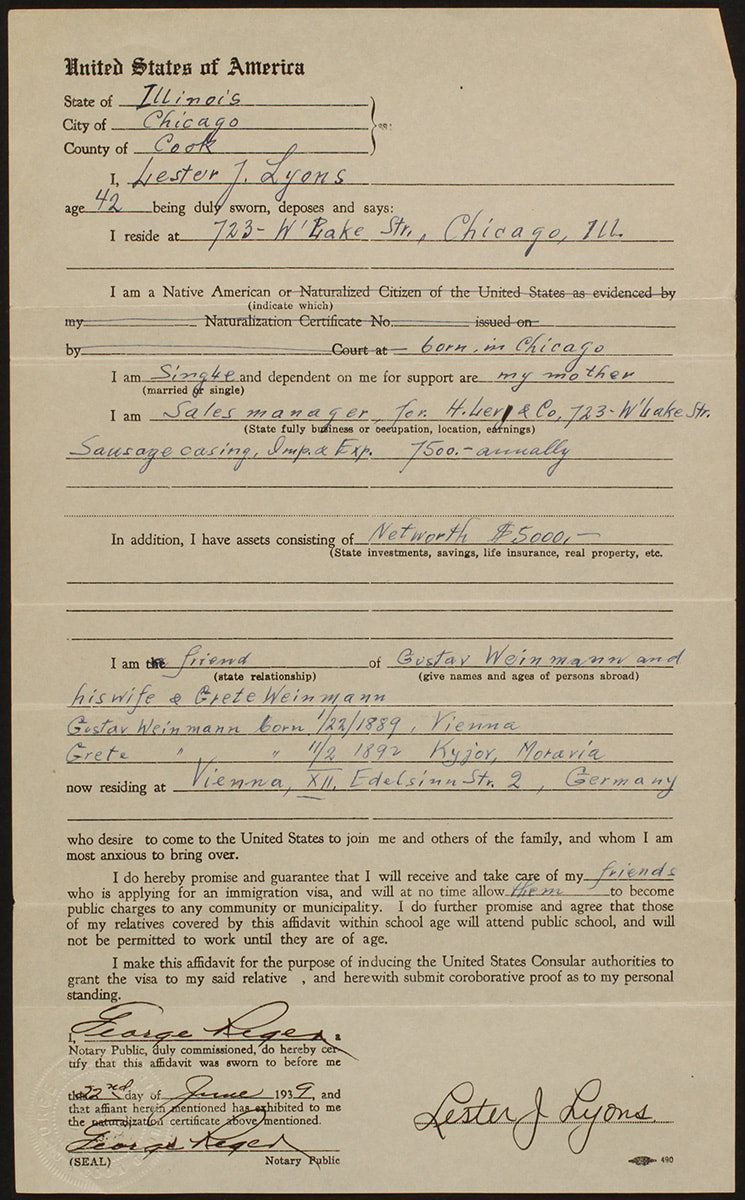 United States of America
State of Illinois
City of Chicago ss:
County of Cook
I, Lester J. Lyons
age 42 being duly sworn, deposes and says:
I reside at 723- W'Lake Str., Chicago, Ill.
I am a Native American or Naturalized Citizen of the United States as evidenced by
(indicate which)
my Naturalization Certificate No. issued on
by Court at born in Chicago
I am Single and dependent on me for support are my mother
(married or single)
I am Sales manager, for H. Levy & Co, 723- W'Lake Str.
(State fully business or occupation, location, earnings)
Sausage casing, Imp. & Exp. 7500.- annually
In addition, I have assets consisting of Networth $5000,-
(State investments, savings, life insurance, real property, etc.
I am the friend of Gustav Weinmann and
(state relationship) (give names and ages of persons abroad)
his wife Grete Weinmann
Gustav Weinmann born 1/22/1889, Vienna
Grete " " 11/2 1892 Kyjov, Moravia
now residing at Vienna, XII. Edelsinn Str. 2, Germany
who desire to come to the United States to join me and others of the family, and whom I am
most anxious to bring over.
I do hereby promise and guarantee that I will receive and take care of my friends
who is applying for an immigration visa, and will at no time allow them to become
public charges to any community or municipality. I do further promise and agree that those
of my relatives covered by this affidavit within school age will attend public school, and will
not be permitted to work until they are of age.
I make this affidavit for the purpose of inducing the United States Consular authorities to
grant the visa to my said relative , and herewith submit coroborative proof as to my personal
standing.
I, George Reger a
Notary Public, duly commissioned, do hereby cer
tify that this affidavit was sworn to before me
this 22nd day of June 1939, and
that affiant herein mentioned has exhibited to me
the naturalization certificate above mentioned.
George Reger Lester J Lyons.
(SEAL) Notary Public 490